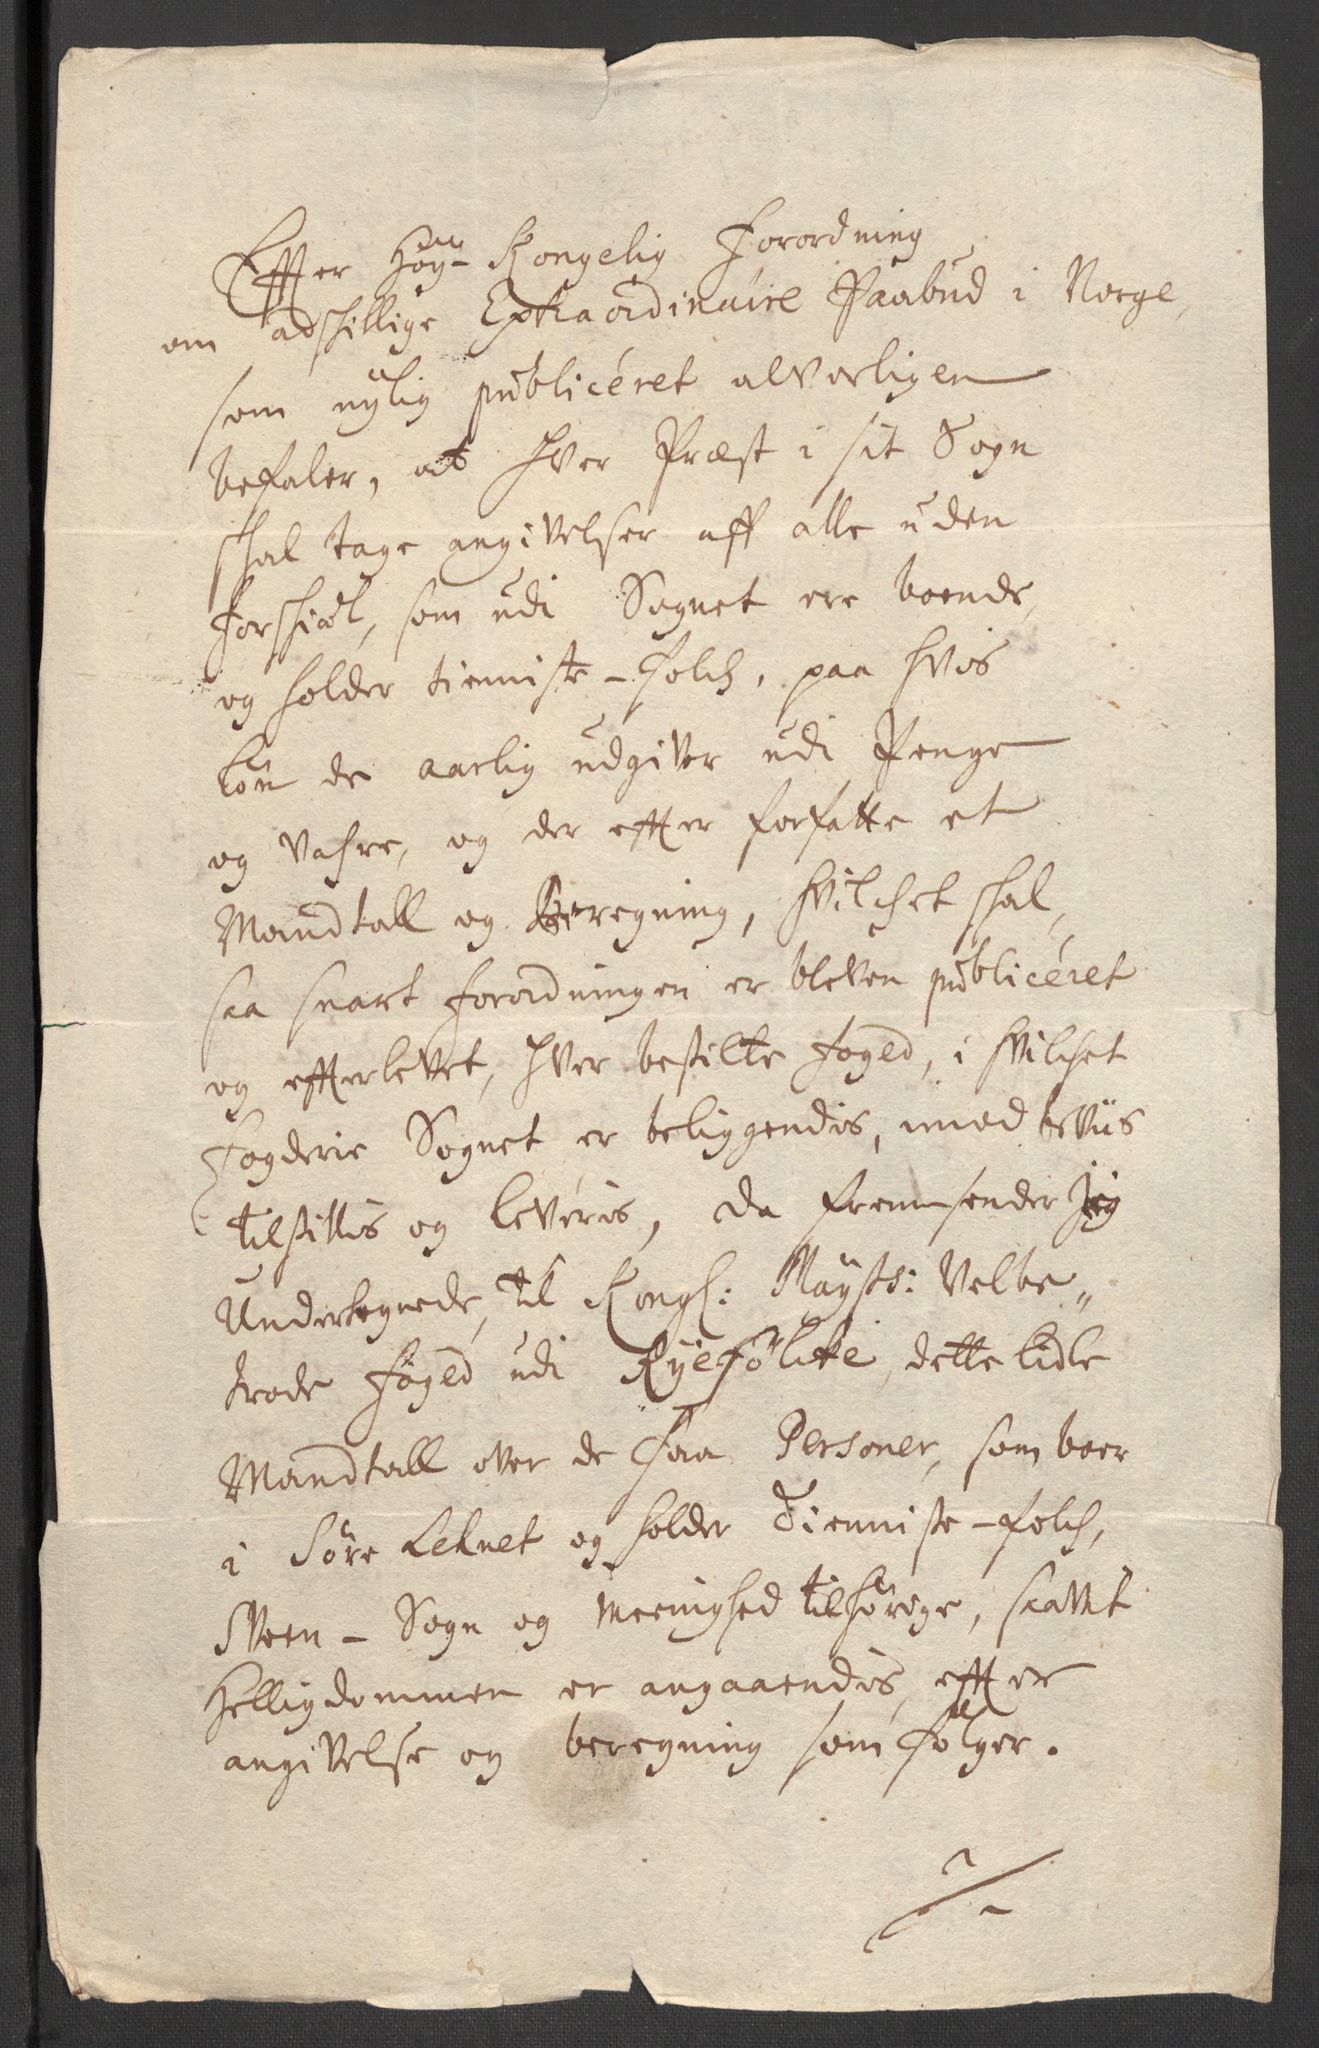 Effter Höy- Kongelig Forordning
om adschillige Extraordinaire Paabud i Norge,
som nylig publiceret alvorligen
befaler, at hver Præst i sit Sogn
schal tage angivelser aff alle uden
forschiæl, som udi Sognet ere boende,
og holder tienniste-folch, paa hvis
lön de aarlig udgiver udi Penge
og vahre, og der effter forfatte et
Mandtall og Beregning, hvilchet schal,
saa snart forordningen er bleven publiceret
og effterlevet, hver bestilte foged, i hvilchet
Fogderie Sognet er beliggendis, imod beviis
tilstillis og leveris, da fremsender Jeg
Undertegnede, til Kongl: Mayts: Velbe„
trode foged udi Ryefölcke, dette lidle
Mandtall over de faa Personer, som boer
i Söre Lehnet og holder Tienniste-folch,
Sogn og Meenighed tilhörige, saavit
Helligdommen er angaaendis, effter
angivelse og beregning som fölger.